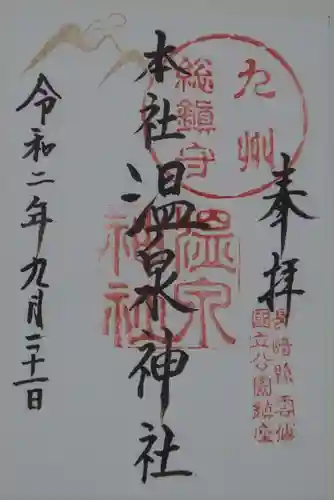 奉拝
九州
総鎮守
長崎縣雲仙
國立公園鎮座
本社温泉神社
温泉
神社
令和二年九月二十一日